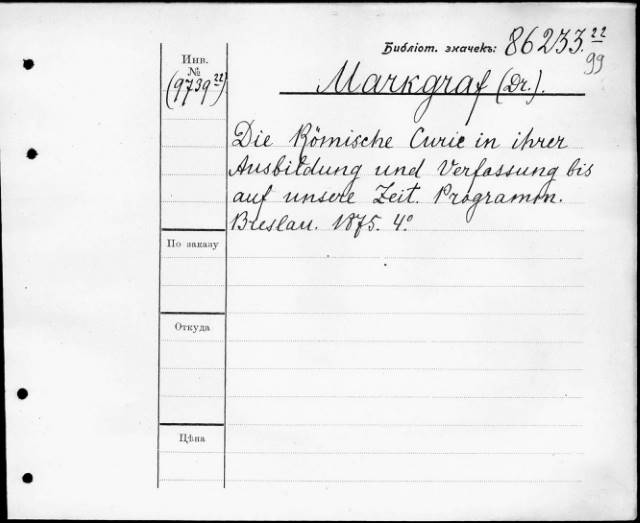 Библіот. значекъ: 86233.22
99
Инв.
№
(9739 22)
Markgraf (Dr.).
Die Römische Curie in ihrer
Ausbildung und Verfassung bis
auf unsere Zeit. Programm.
Breslau. 1875. 4°
По заказу
Откуда
Цѣна